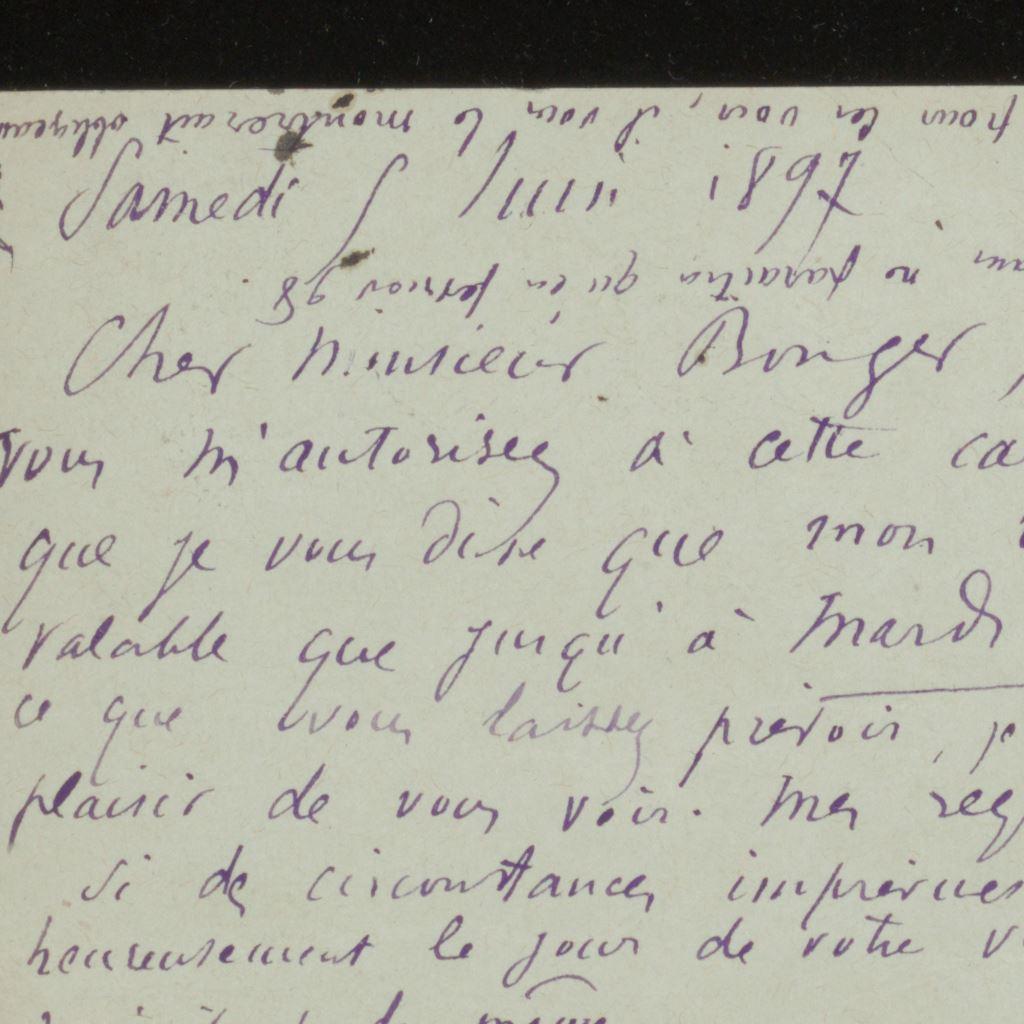 pour les voir, il vous le montrerait
Samedi 5 Juin 1897
ne paraîtra qu'en février 98
Cher Monsieur Bonger,
vous m'autorisez à cette
que je vous dise que mon
valable que jusqu'à Mardi
ce que vous laissez prévoir,
plaisir de vous voir. Mes
Si des circonstances imprévues
heureusement le jour de votre